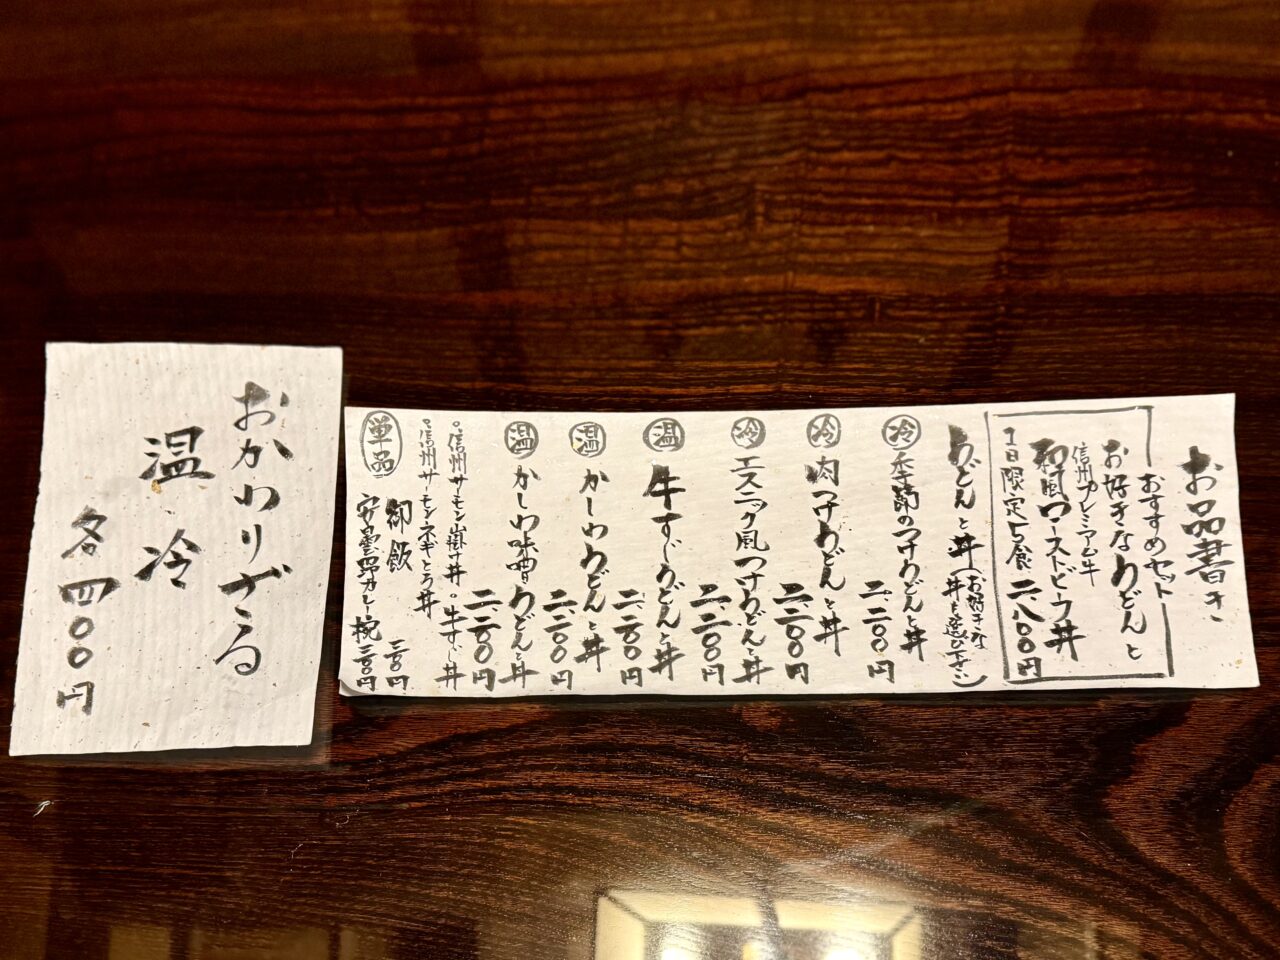 お品書き
おすすめセット
お好きなうどんと
信州プレミアム牛
和風ローストビーフ丼
1日限定5食 二、八〇〇円
うどんと丼(お好きな丼を選び下さい)
冷 季節のつけうどんと丼
二、二〇〇円
冷 肉つけうどんと丼
二、二〇〇円
冷 エスニック風つけうどんと丼
二、二〇〇円
温 牛すじうどんと丼
二、二〇〇円
温 かしわうどんと丼
二、二〇〇円
温 かしわ味噌うどんと丼
二、二〇〇円
。信州サーモン山掛け丼 。牛すじ丼
。信州サーモンネギとろ丼
単品 御飯 三〇〇円
安曇野カレー 一椀 三〇〇円
おかわりざる
温 冷
各 四〇〇円